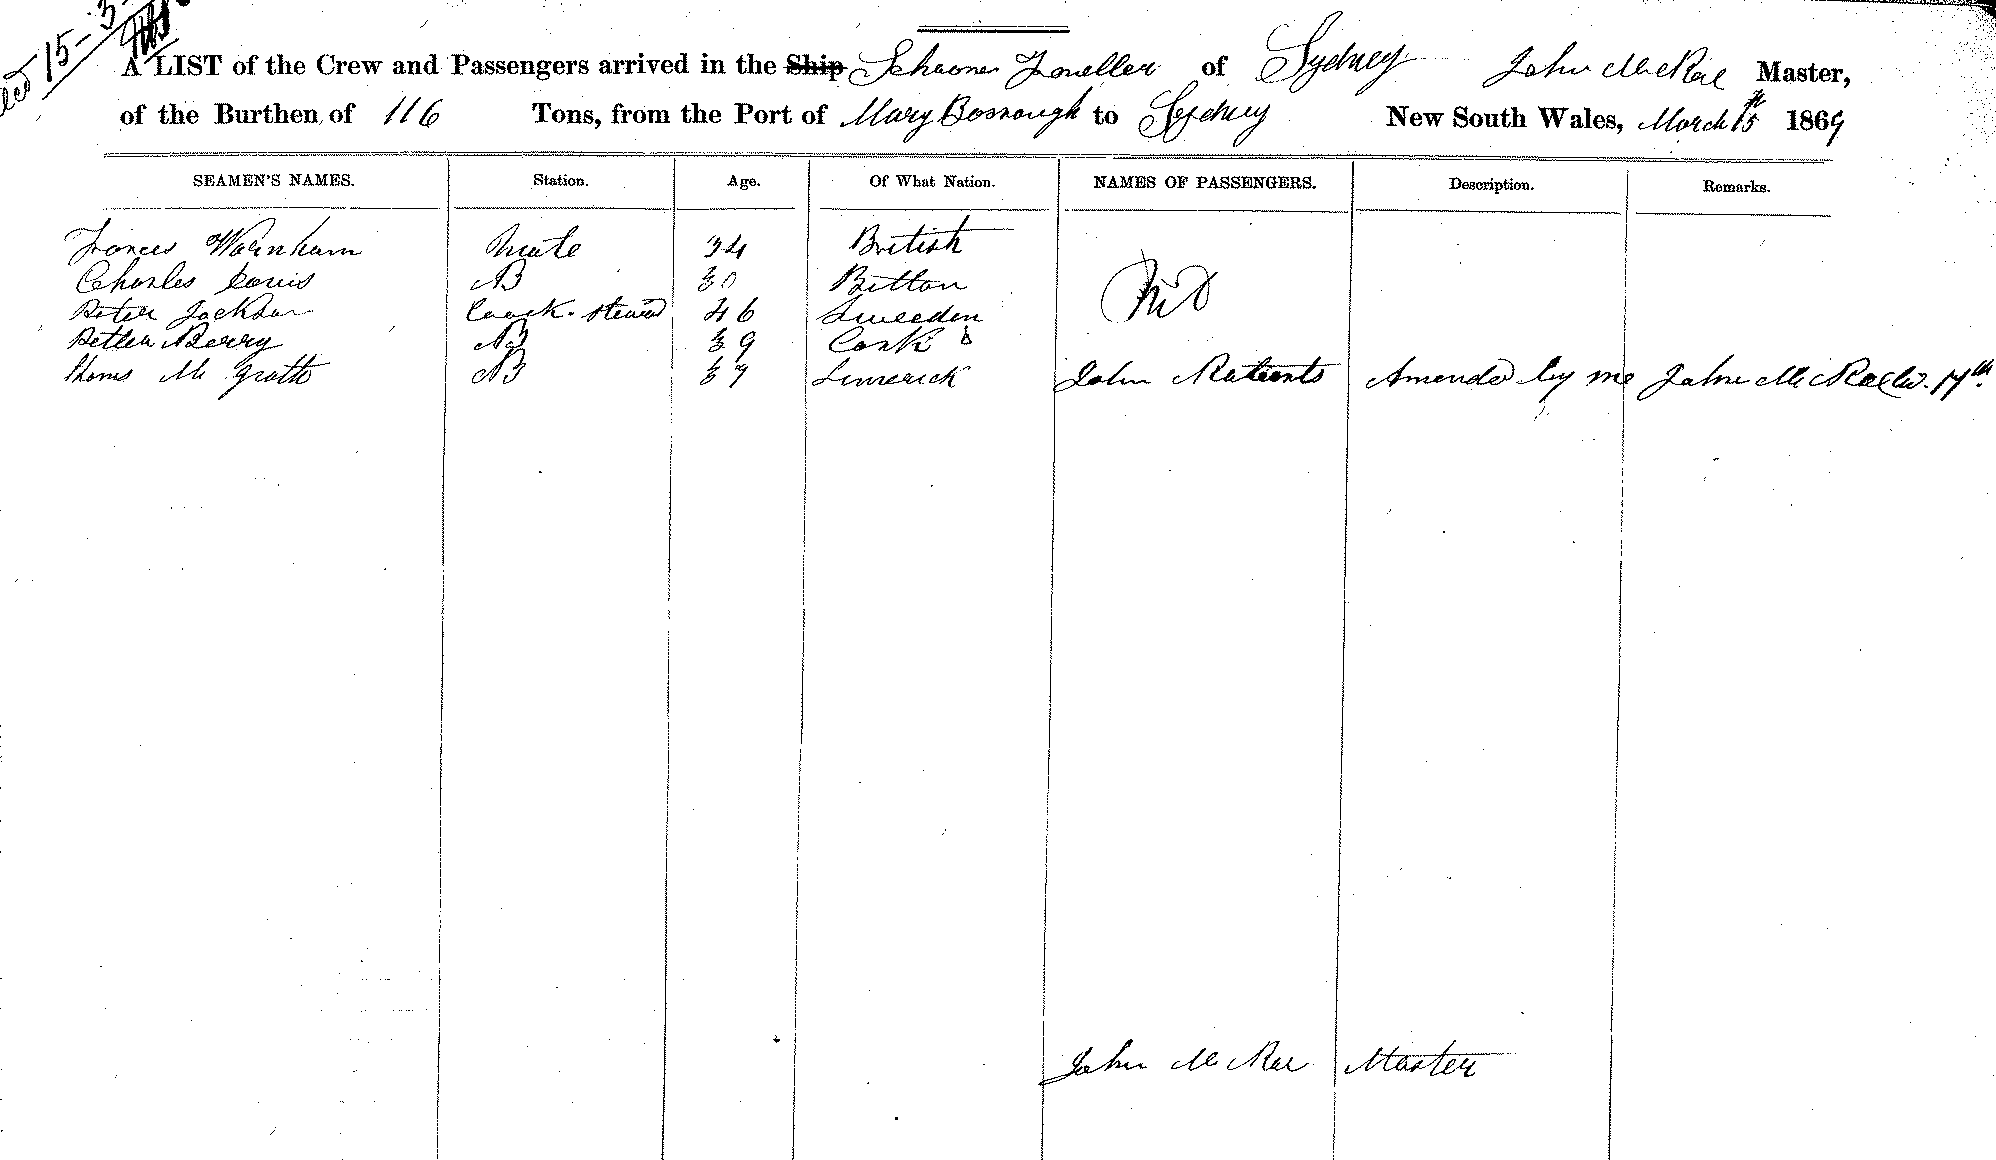 15-3-
A LIST of the Crew and Passengers arrived in the Ship Schooner Traveller of Sydney John McRae Master,
of the Burthen of 116 Tons, from the Port of Mary Borrough to Sydney New South Wales, March 15th 1869
SEAMEN'S NAMES. Station. Age. Of What Nation. NAMES OF PASSENGERS. Description. Remarks.
Frances Warnham Mate 34 British
Charles AB 30 Britton
Nil
Peter Jackson Coock. Steward 46 Sweeden
Berry AB 39 Cork
Thoms Mc Grath AB 37 Limerick John Amended by me John McRae 17th
John McRae Master